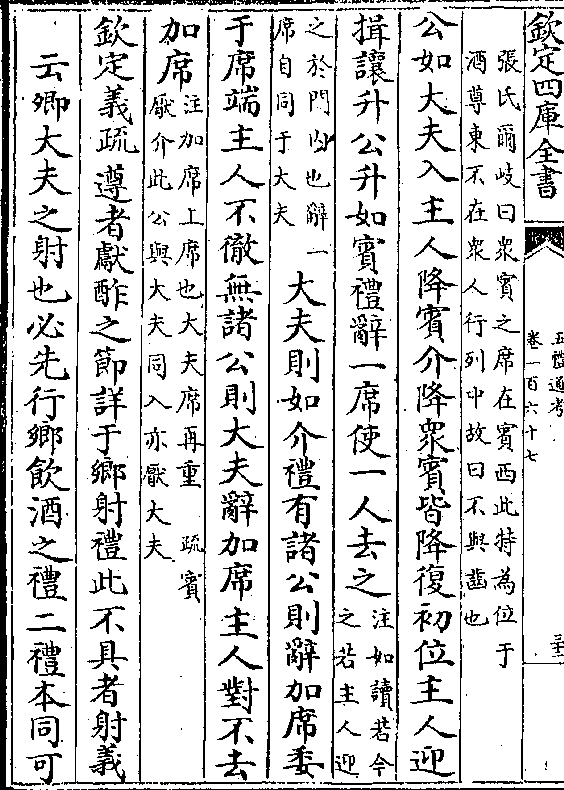 欽定四庫全書
五禮通考
卷一百六十七
三十
張氏爾岐曰衆賓之席在賓西此特為位于
酒尊東不在衆人行列中故曰不與齒也
公如大夫入主人降賓介降衆賓皆降復初位主人迎
揖讓升公升如賓禮辭一席使一人去之
注如讀若今
之若主人迎
之於門內也辭一
席自同于大夫
大夫則如介禮有諸公則辭加席委
于席端主人不徹無諸公則大夫辭加席主人對不去
加席
注加席上席也大夫席再重
疏賓
厭介此公與大夫同入亦厭大夫
欽定義疏遵者獻酢之節詳于鄉射禮此不具者射義
云卿大夫之射也必先行鄉飲酒之禮二禮本同可